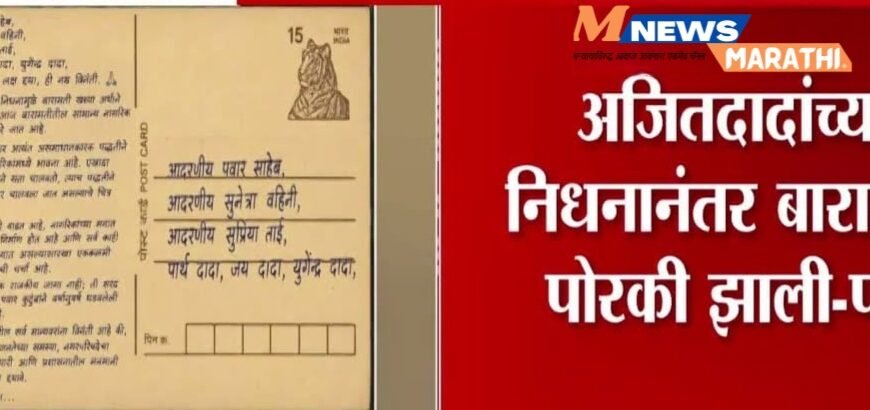 हेब,
वहिनी,
ताई,
ादा, युगेन्द्र दादा,
लक्ष द्यावे, ही नम्र विनंती.
निधनामुळे बारामती खऱ्या अर्थाने
आज बारामतीतील सामान्य नागरिक
रे जात आहे.
र अत्यंत असमाधानकारक पद्धतीने
रिकांमध्ये भावना आहे. एखादा
ने सत्ता चालवतो, त्याच पद्धतीने
र चालवला जात असल्याचे चित्र
वाढत आहे, नागरिकांच्या मनात
निर्माण होत आहे आणि सर्व काही
यात असल्यासारखा एककलमी
ची चर्चा आहे.
क राजकीय जागा नाही; ती शरद
पवार कुटुंबाने वर्षानुवर्षे घडवलेली
तील सर्व मान्यवरांना विनंती आहे की,
जनतेच्या समस्या, नगरपरिषदेचा
ारी आणि प्रशासनातील मनमानी
द्यावे.
पोस्ट कार्ड POST CARD
15 भारत
INDIA
आदरणीय पवार साहेब,
आदरणीय सुनेत्रा वहिनी,
आदरणीय सुप्रिया ताई,
पार्थ दादा, जय दादा, युगेन्द्र दादा,
पिन क.
M NEWS
MARATHI
अजितदादांच्य
निधनानंतर बारा
पोरकी झाली-प